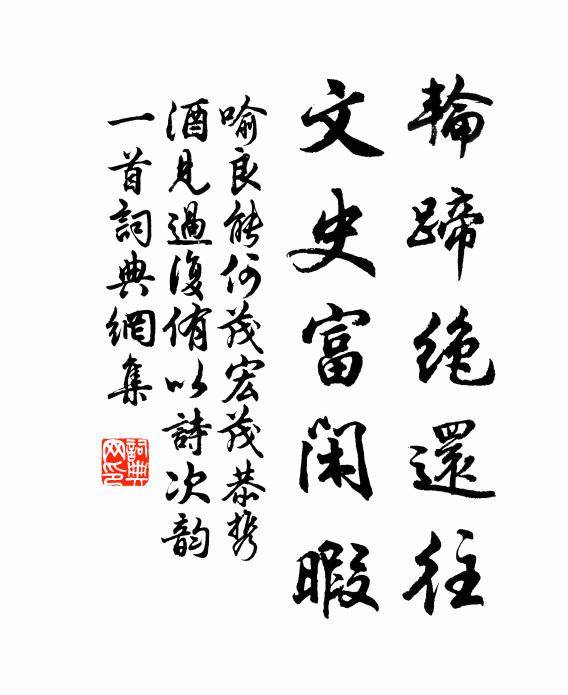 輪蹄絶還往
文史富閑暇
喻良能何茂宏茂恭携
酒見過復侑以詩次韵
一首詞典網集
詞典网印